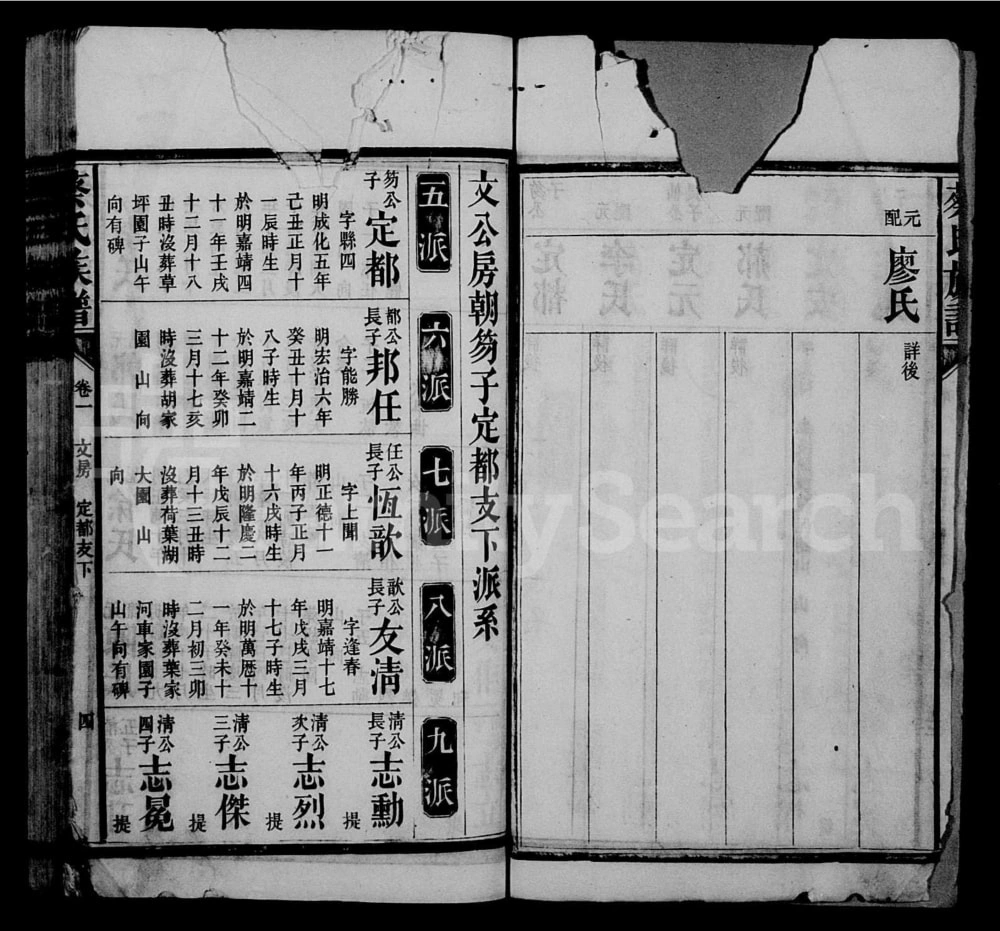 元配
廖氏
詳後
文公房朝笏子定都支下派系
五派
六派
七派
八派
九派
笏公子
定都
字縣四
明成化五年
己丑正月十
一辰時生
於明嘉靖四
十一年壬戌
十二月十八
丑時沒葬草
坪園子山午
向有碑
都公長子
邦任
字能勝
明宏治六年
癸丑十月十
八子時生
於明嘉靖二
十二年癸卯
三月十七亥
時沒葬胡家
園山向
任公長子
恆歆
字上聞
明正德十一
年丙子正月
十六戌時生
於明隆慶二
年戊辰十二
月十三丑時
沒葬荷葉湖
大園山
向
歆公長子
友清
字逢春
明嘉靖十七
年戊戌三月
十七子時生
於明萬曆十
一年癸未十
二月初三卯
時沒葬葉家
河車家園子
山午向有碑
清公長子
志勳
提
清公次子
志烈
提
清公三子
志傑
提
清公四子
志冕
提
蔡氏族譜
卷一
文房
定都支下
四